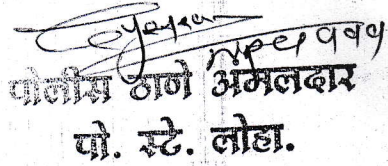 पोलीस ठाणे अंमलदार
पो. स्टे. लोहा.